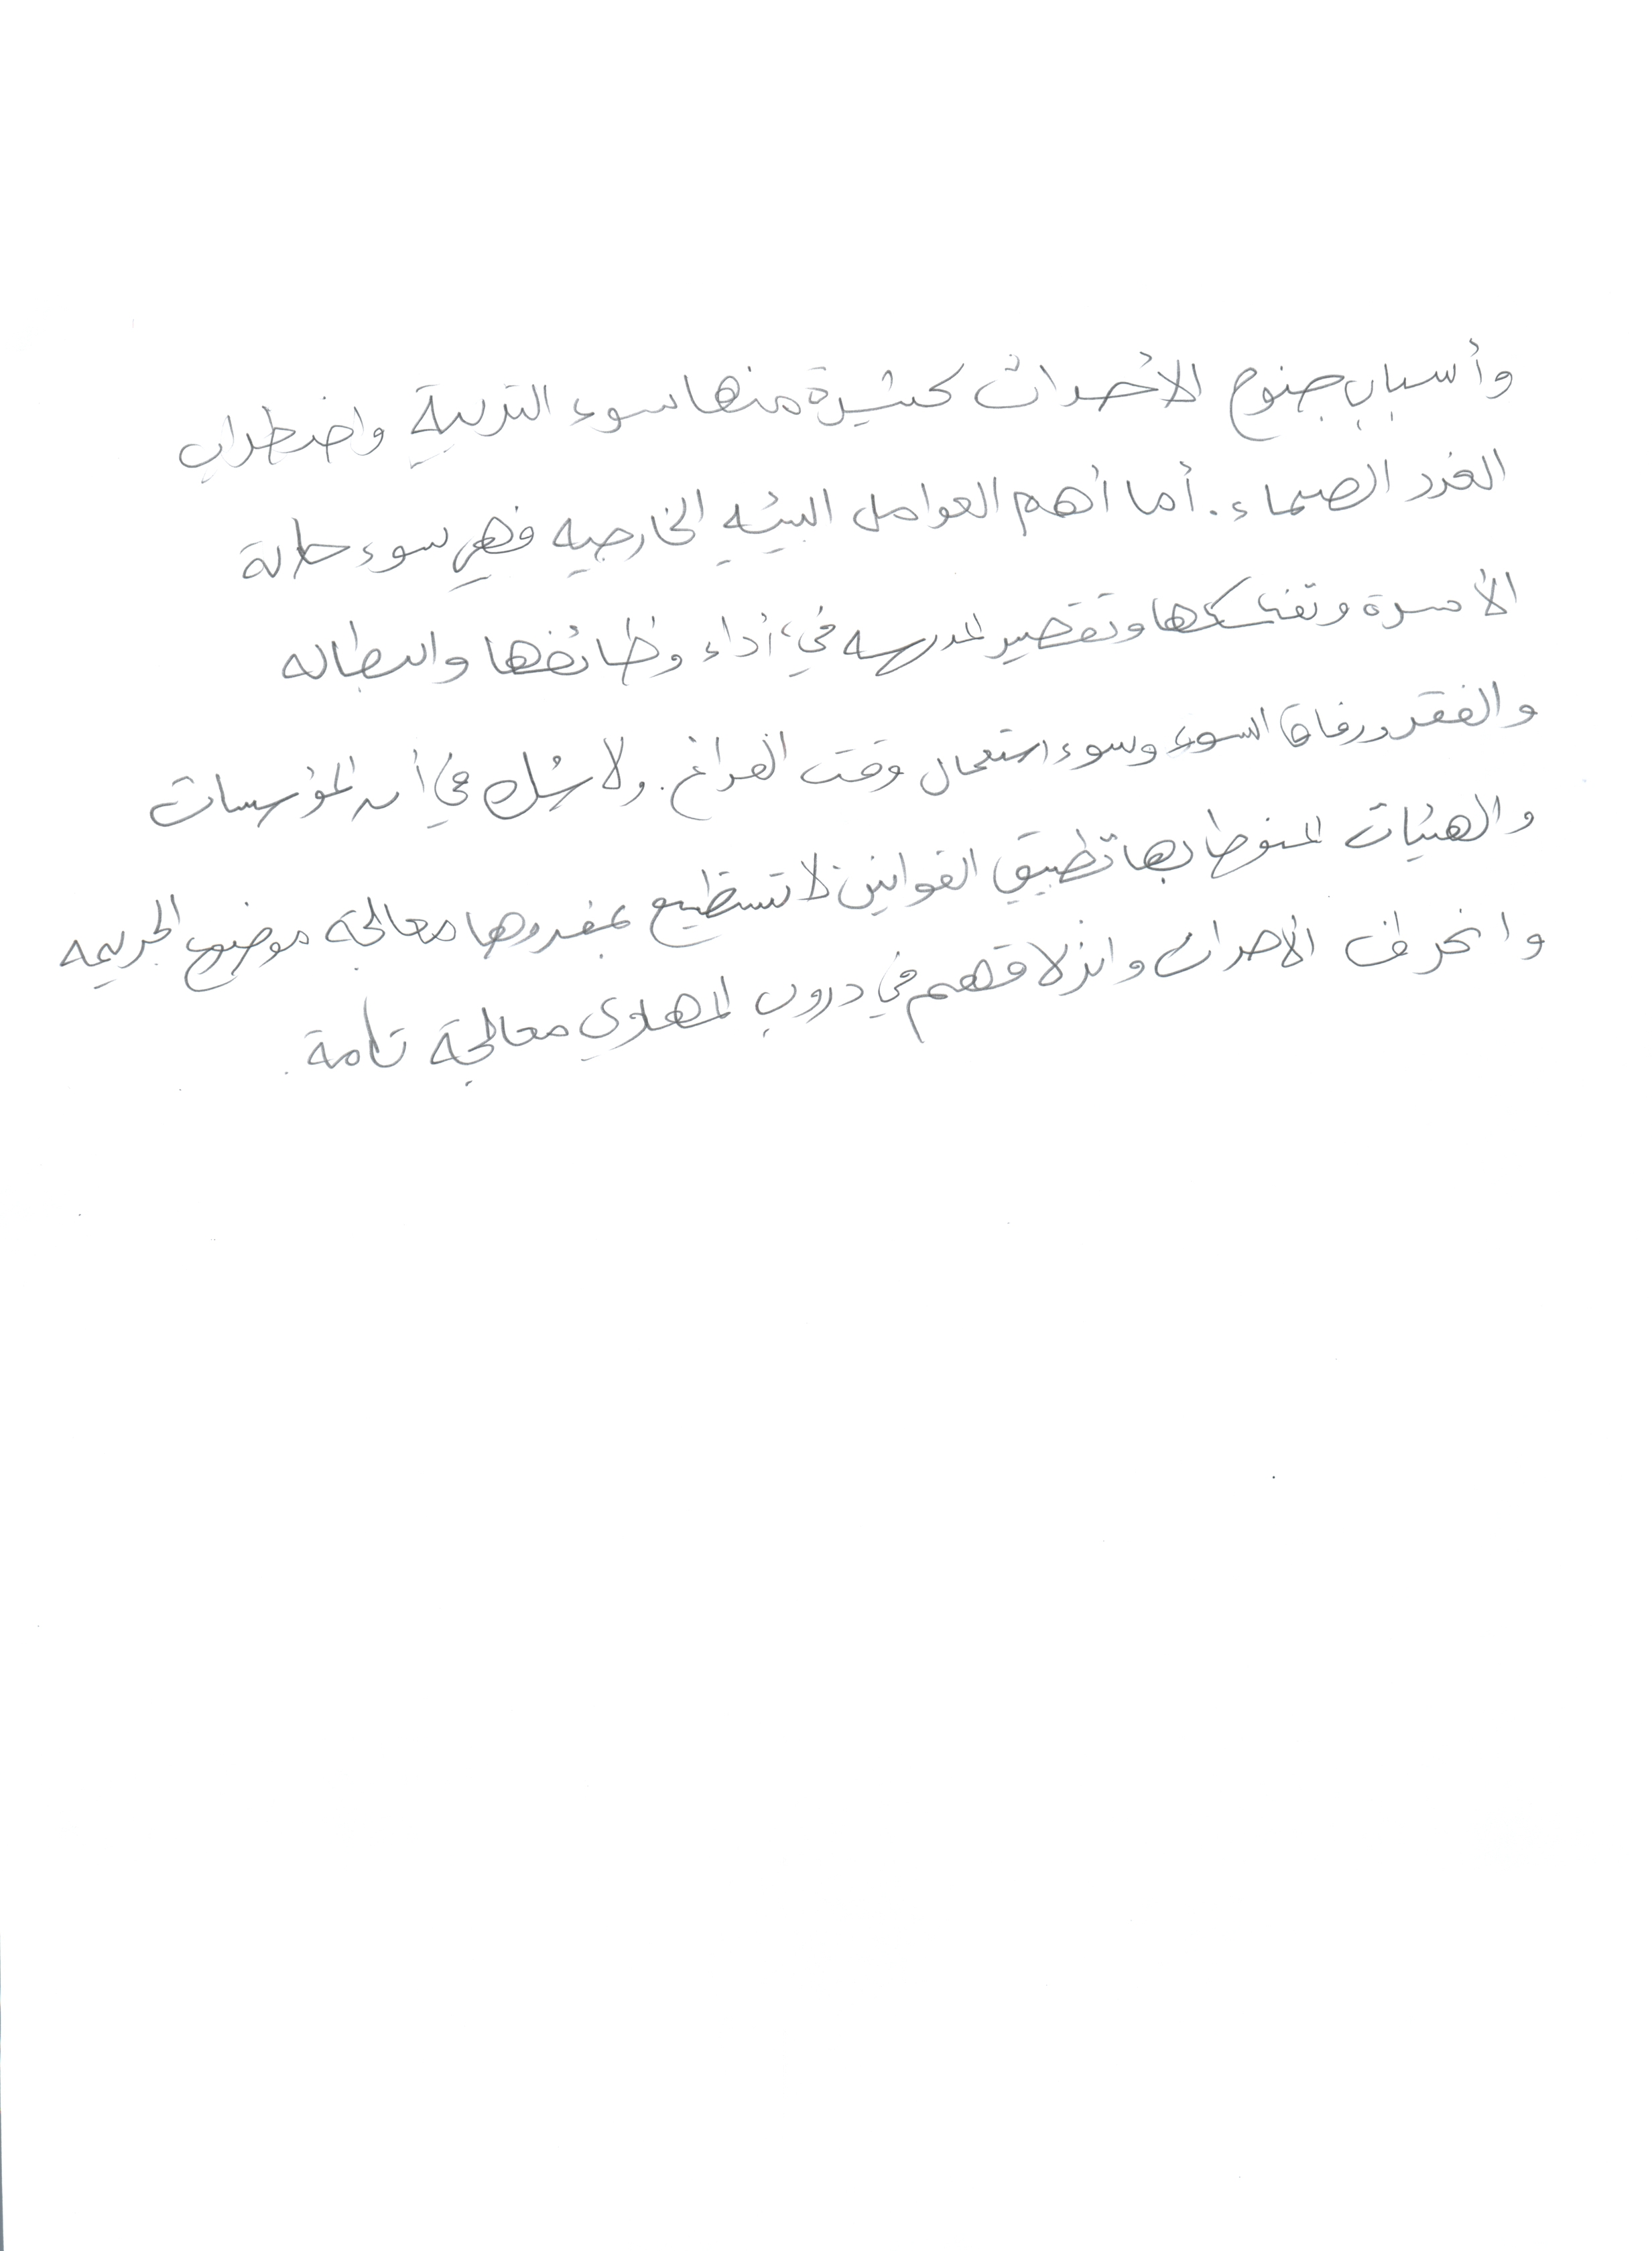 وأسباب جنوح الأحداث كثيرة منها سوء التربية واضطراب
الغدد الصماء. أما أهم العوامل البيئيه الخارجيه فهي سوء حالة
الأسرة وتفككها وتقصير المدرسه في أداء وظائفها والبطاله
والفقر ورفاق السوء وسوء استعمال وقت الفراغ. ولا شك في أن المؤسسات
والهيئات المنوط بها تطبيق القوانين لا تستطيع بمفردها معالجة موضوع الجريمه
وانحراف الأحداث وانزلاقهم في دروب المهاوي معالجة تامة.